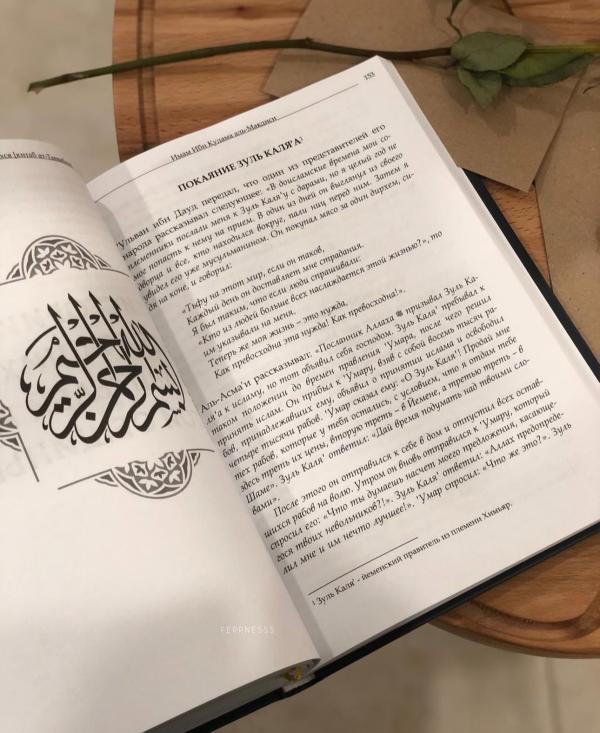 بسم الله الرحمن الرحيم
153
Имам Ибн Кудама аль-Макдиси
ПОКАЯНИЕ ЗУЛЬ КАЛЯ'А¹
'Ульван ибн Дауд передал, что один из представителей его
народа рассказывал следующее: «В доисламские времена мои со-
племенники послали меня к Зуль Каля'у с дарами, но я целый год не
мог попасть к нему на прием. В один из дней он выглянул из своего
дворца и все, кто находился вокруг, пали ниц перед ним. Затем я
увидел его уже мусульманином. Он покупал мясо за один дирхем, си-
дя на коне, и говорил:
«Тьфу на этот мир, если он таков,
Каждый день он доставляет мне страдания.
Я был таким, что если люди спрашивали:
«Кто из людей больше всех наслаждается этой жизнью?», то
им указывали на меня.
Теперь же моя жизнь – это нужда,
Как превосходна эта нужда! Как превосходна!».
Аль-Асма'и рассказывал: «Посланник Аллаха ﷺ призывал Зуль Ка-
ля'а к исламу, но тот объявил себя господом. Зуль Каля' пребывал в
таком положении до времен правления 'Умара, после чего решил
принять ислам. Он прибыл к 'Умару, взяв с собой восемь тысяч ра-
бов, принадлежавших ему, объявил о принятии ислама и освободил
четыре тысячи рабов. 'Умар сказал ему: «О Зуль Каля'! Продай мне
тех рабов, которые у тебя остались, с условием, что я отдам тебе
здесь треть их цены, вторую треть – в Йемене, а третью треть – в
Шаме». Зуль Каля' ответил: «Дай время подумать над твоими сло-
вами».
После этого он отправился к себе в дом и отпустил всех остав-
шихся рабов на волю. Утром он вновь отправился к 'Умару, который
спросил его: «Что ты думаешь насчет моего предложения, касающе-
гося твоих невольников?!». Зуль Каля' ответил: «Аллах предопреде-
лил мне и им нечто лучшее!». 'Умар спросил: «Что же это?». Зуль
¹ Зуль Каля' - йеменский правитель из племени Химьяр.
FEPPNESSS